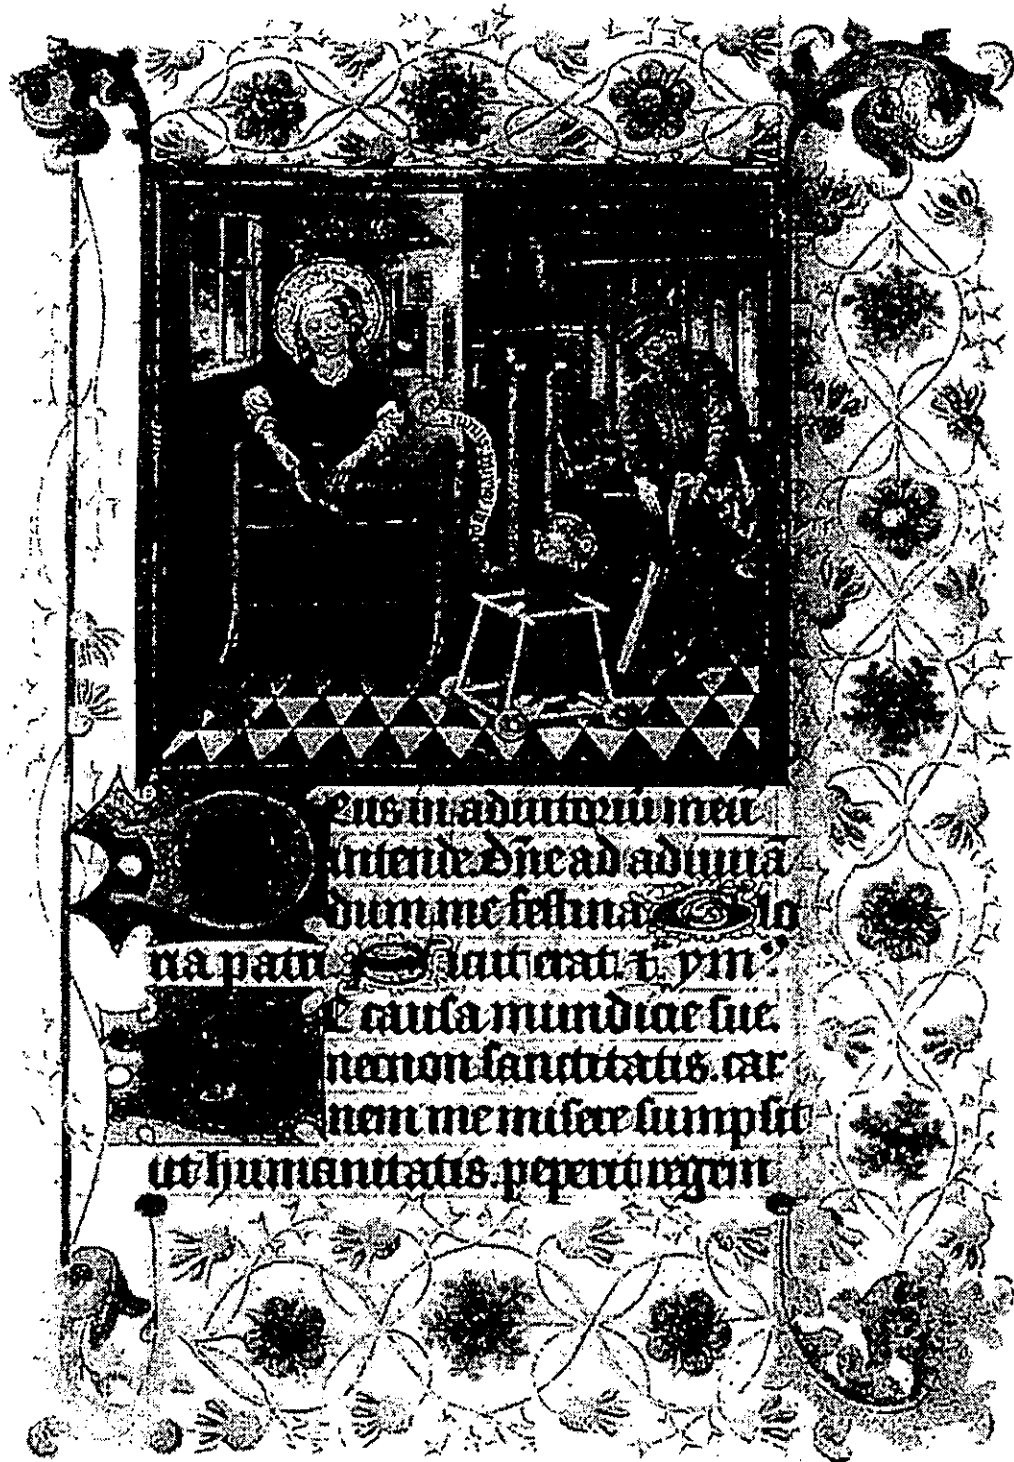 Deus in adiutoriu meu
intende. Dñe ad adiuuā
dum me festina. Glo
ria patri Sicut erat. ym
E causa mundicie sue.
necnon sanctitatis. car
nem me misere sumpsit
ut humanitatis. peperit regem